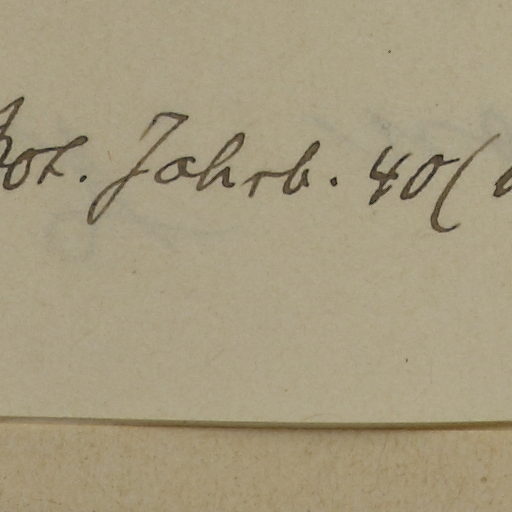 Bot. Jahrb. 40(